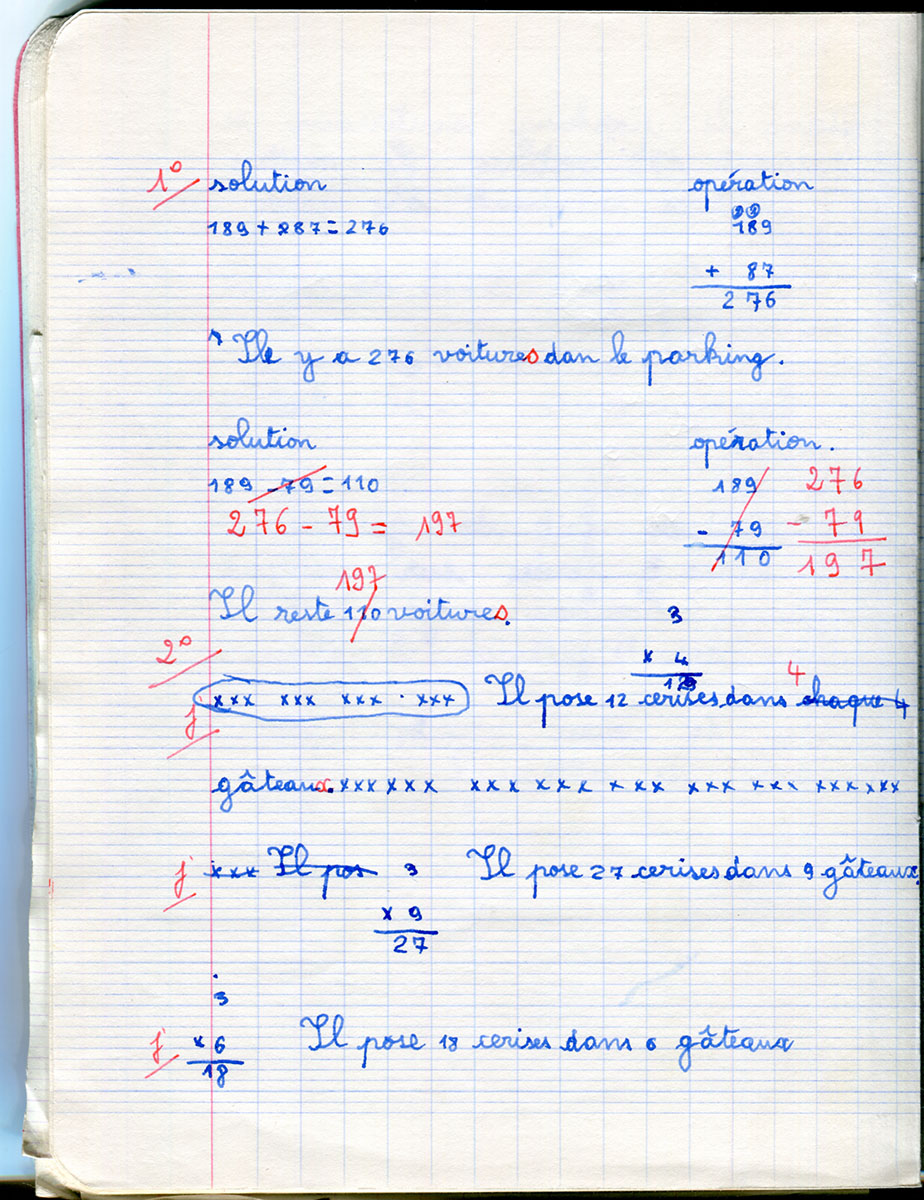 1° solution opération
189 + 287 = 276 189
+ 87
276
Ile y a 276 voitures dan le parking.
solution opération.
189 - 79 = 110 189 276
276 - 79 = 197 - 79 - 79
110 197
197
Il reste 110 voitures.
3
2° x 4
12 4
j xxx xxx xxx · xxx Il pose 12 cerises dans chaque 4
gâteaux. xxx xxx xxx xxx xxx xxx xxx xxx xxx
j xxx Il pos 3 Il pose 27 cerises dans 9 gâteaux.
x 9
27
3
j x 6 Il pose 18 cerises dans 6 gâteaux
18